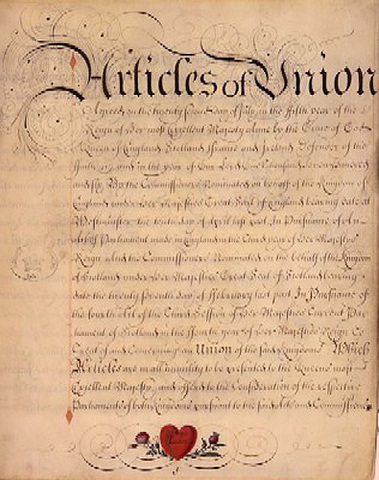 Articles of Union
Agreed on the twenty second day of July in the fifth year of the
Reign of Her most Excellent Majesty Anne by the Grace of God
Queen of England Scotland France and Ireland Defender of the
Faith and in the year of Our Lord One thousand Seven hundred
and six By the Commissioners Nominated on behalf of the Kingdom of
England under Her Majesties Great Seal of England bearing date at
Westminster the tenth day of April last past In Pursuance of an
Act of Parliament made in England in the third year of Her Majesties
Reign and the Commissioners Nominated on the behalf of the Kingdom
of Scotland under Her Majesties Great Seal of Scotland bearing
date the twenty seventh day of February last past In Pursuance of
the fourth Act of the third Session of Her Majesties Current Par
liament of Scotland in the year of Her Majesties Reign to
Treat of and Concerning an Union of the said Kingdoms Which
Articles are in all humility to be presented to the Queens most
Excellent Majesty and offered to the Consideration of the respective
Parliaments of both Kingdoms pursuant to the said Acts and Commissions